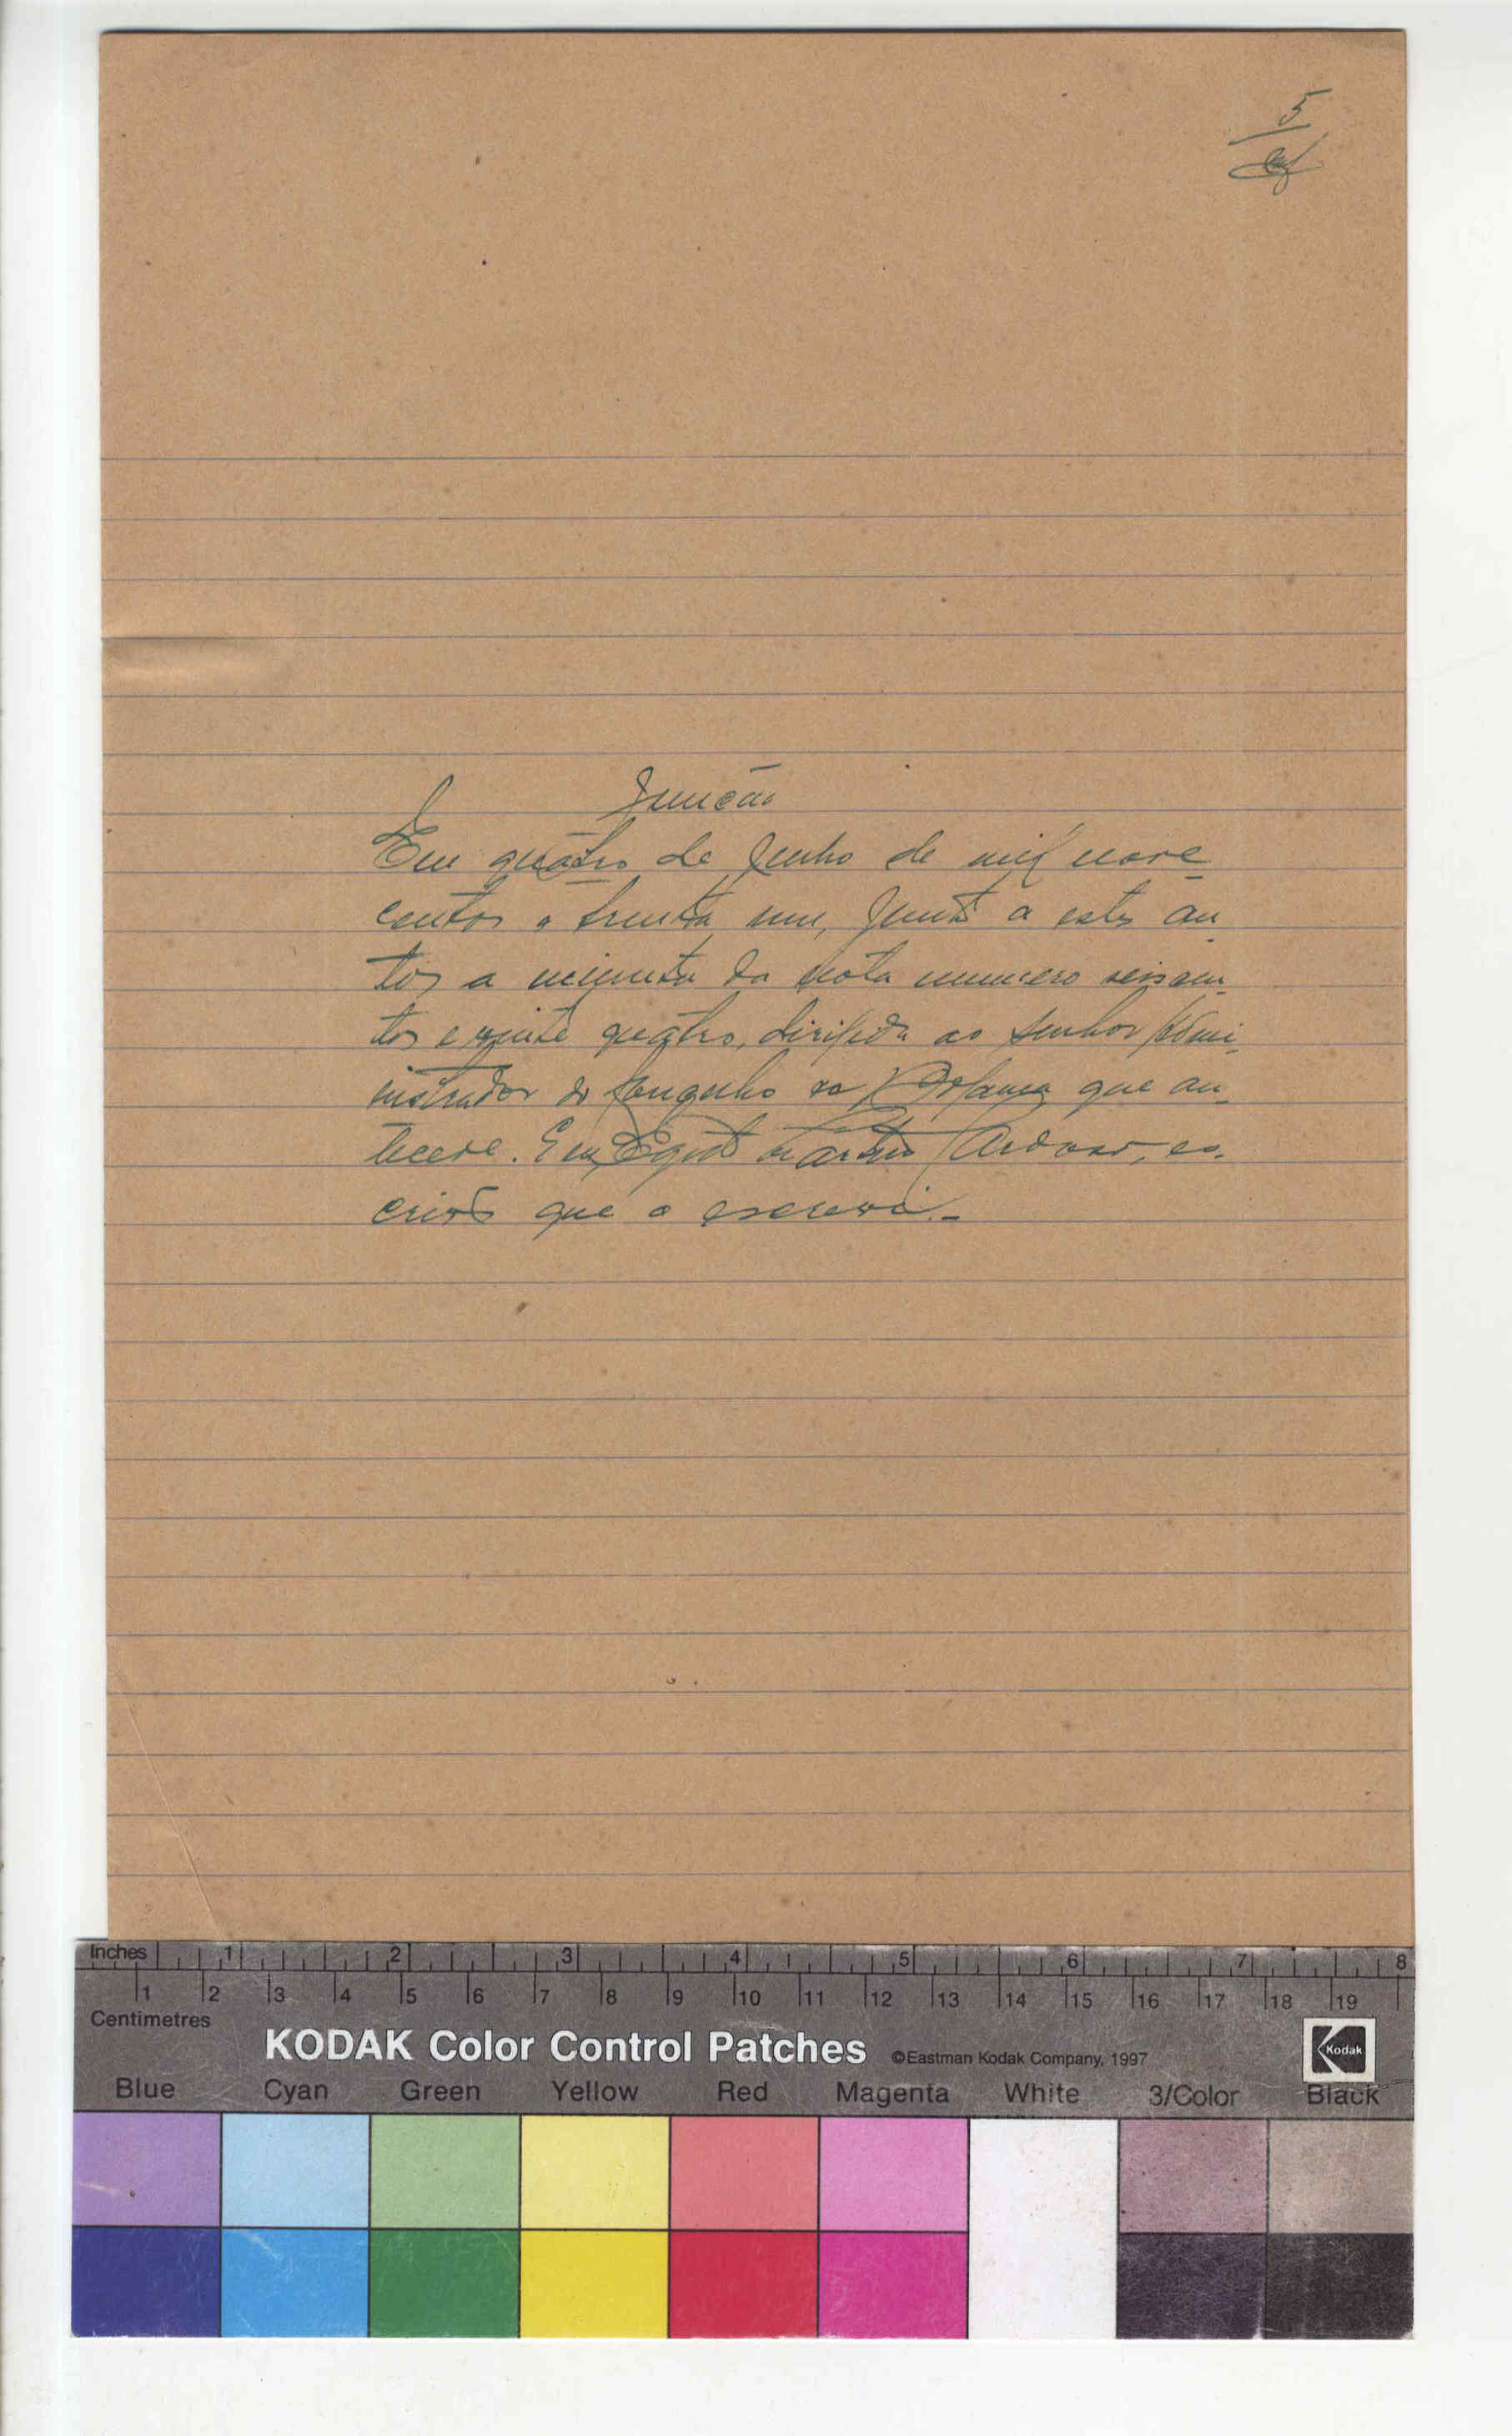 5
Junção
Em quatro de Junho de mil nove
centos e trinta um, Junto a estes au
tos a minuta da nota numero seiscen
tos e vinte quatro, dirigida ao Senhor Admi
nistrador do Concelho que an
tecede. E eu, Cardoso, es
crivão que o escrevi.-
Inches 1 2 3 4 5 6 7 8
1 2 3 4 5 6 7 8 9 10 11 12 13 14 15 16 17 18 19
Centimetres
KODAK Color Control Patches ©Eastman Kodak Company, 1997 Kodak
Blue Cyan Green Yellow Red Magenta White 3/Color Black